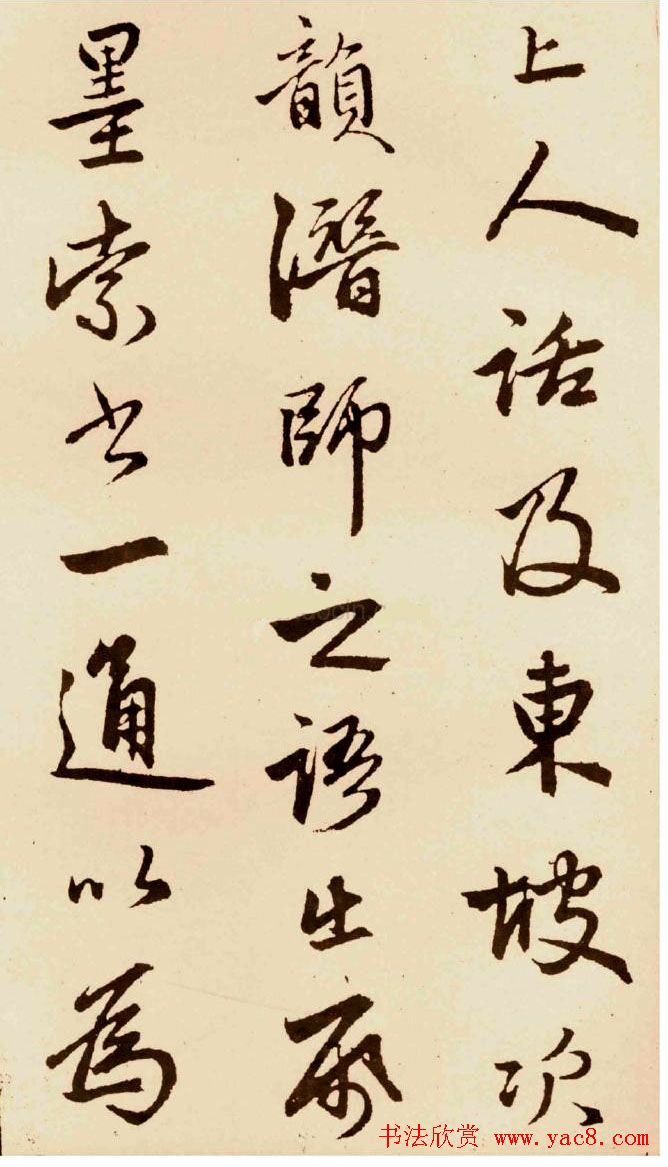 上人話及東坡次
韻潛師之語出帋
墨索書一通以為
书法欣赏 www.yac8.com